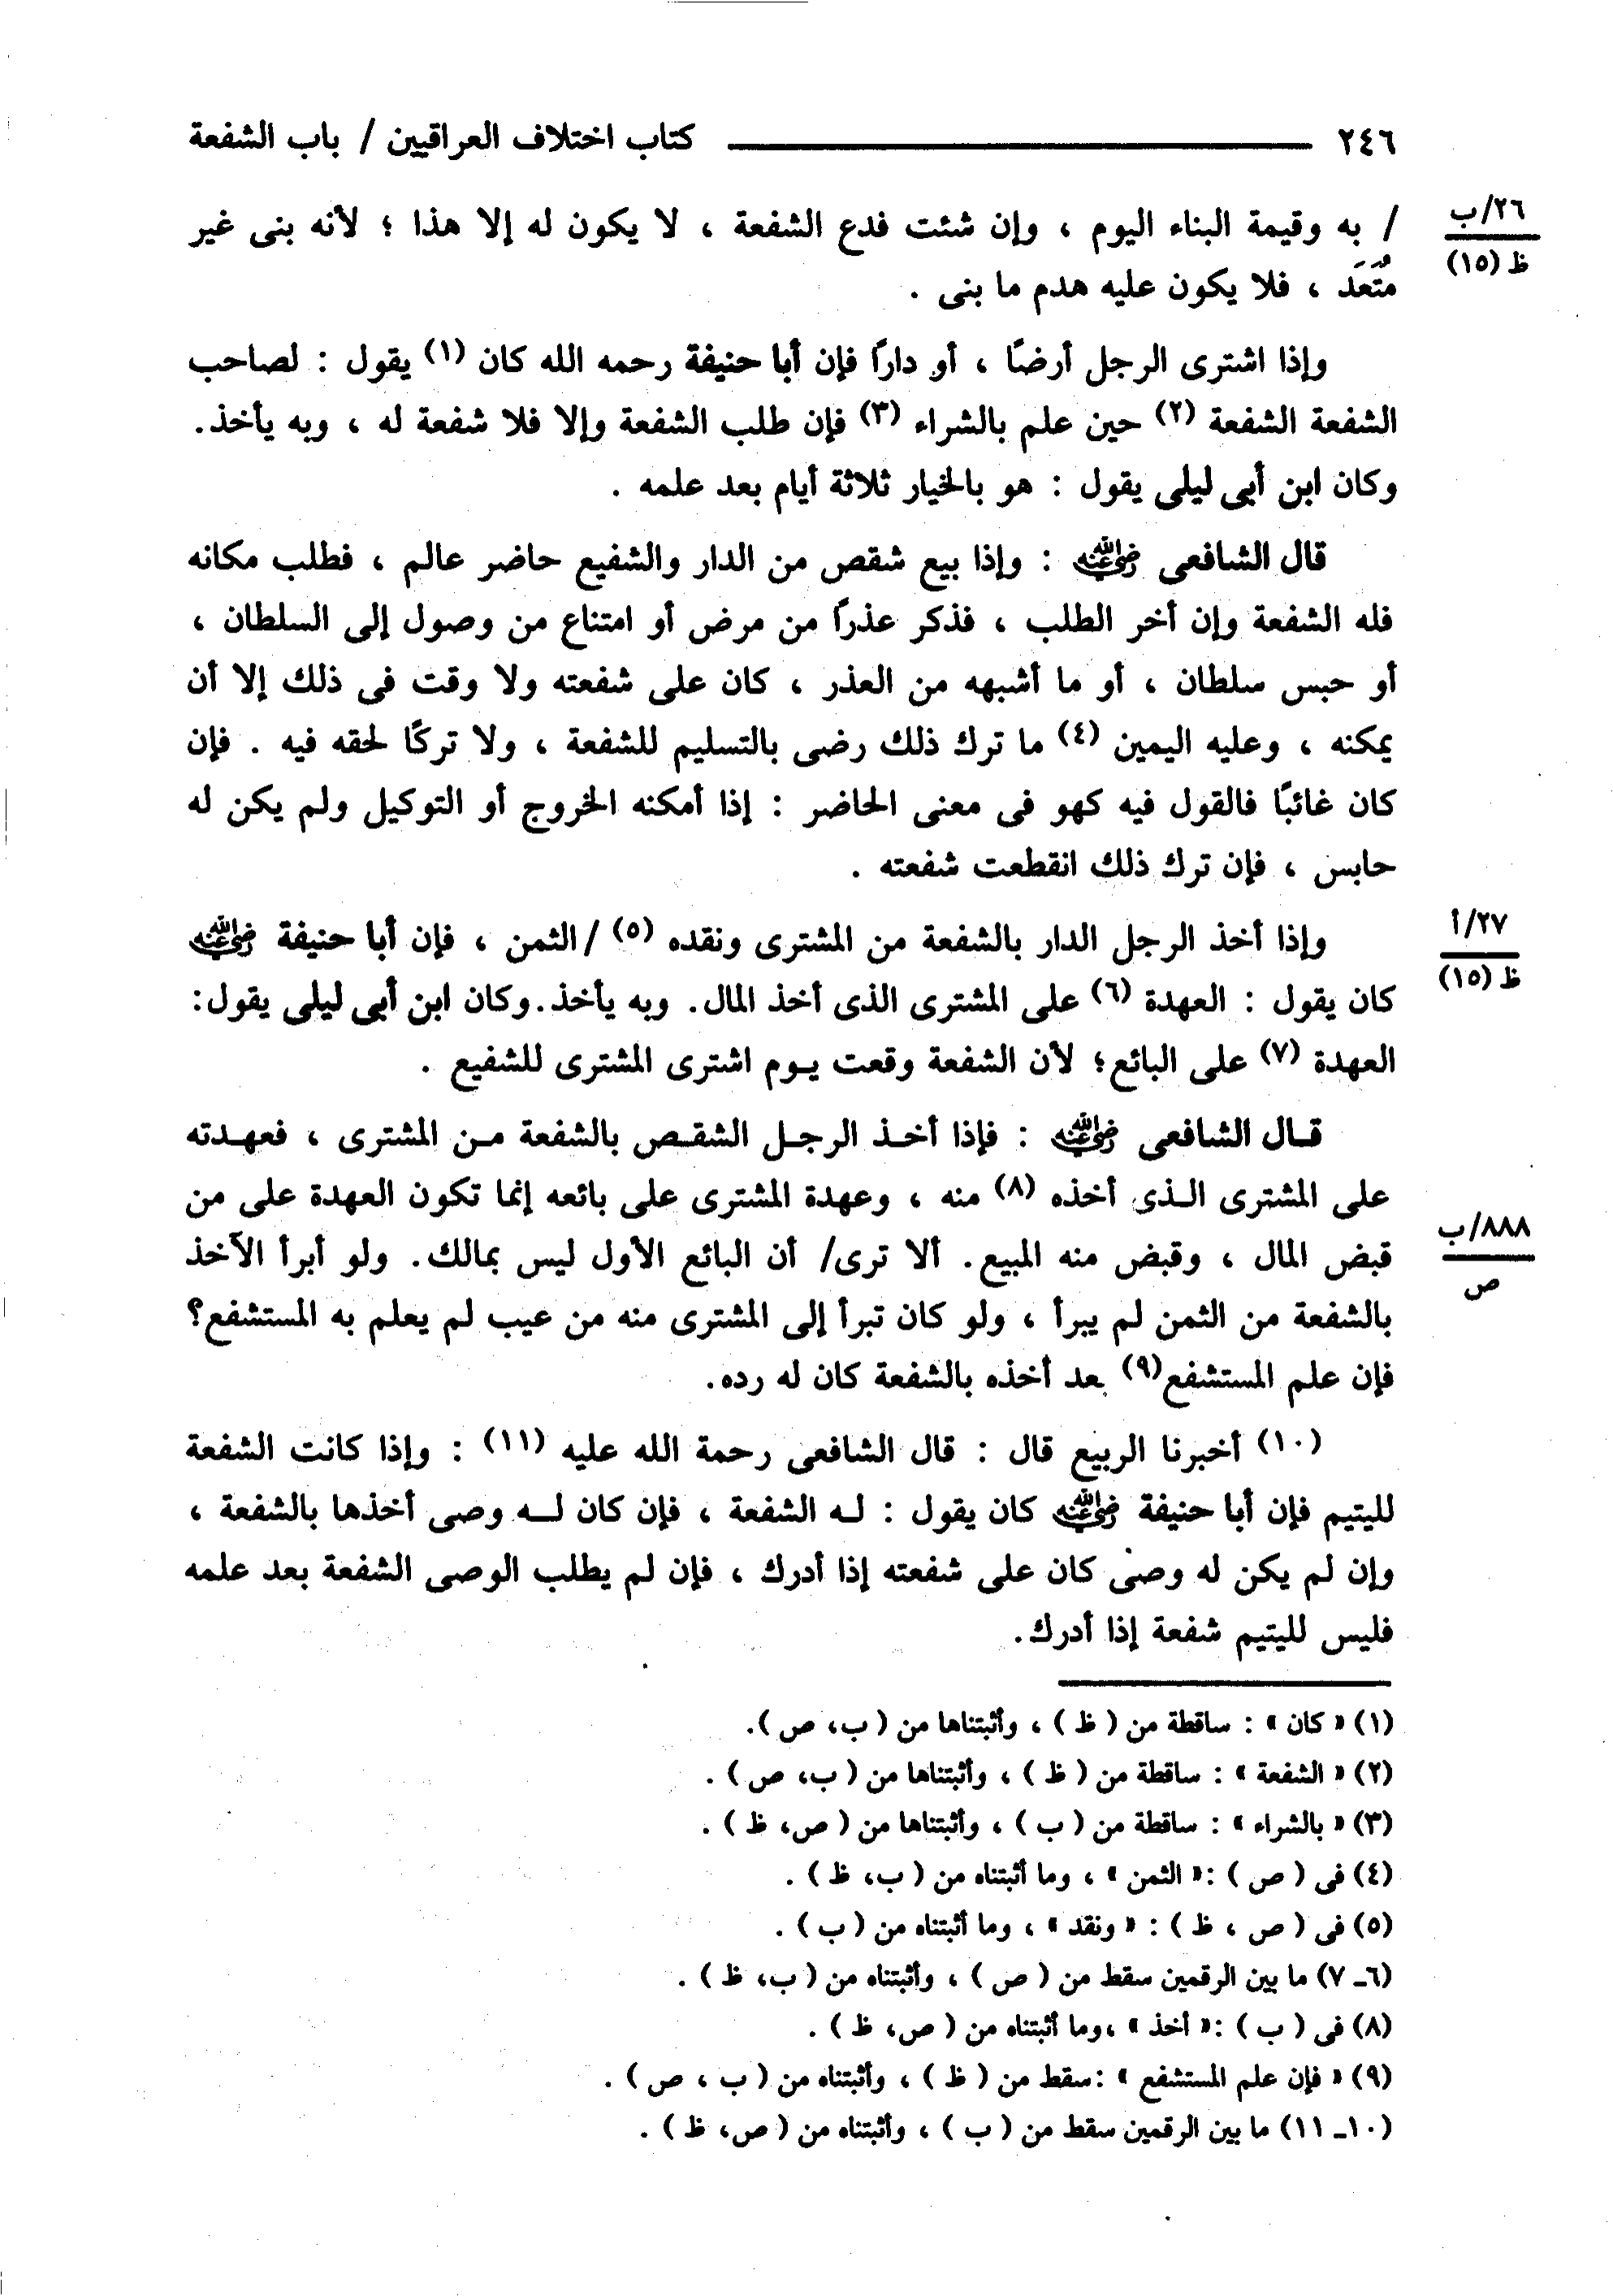 ٢٤٦ كتاب اختلاف العراقيين / باب الشفعة
٢٦/ب
ظ (١٥)
/ به وقيمة البناء اليوم ، وإن شئت فدع الشفعة ، لا يكون له إلا هذا ؛ لأنه بنى غير
مُتَعَد ، فلا يكون عليه هدم ما بنى .
وإذا اشترى الرجل أرضًا ، أو دارًا فإن أبا حنيفة رحمه الله كان (١) يقول : لصاحب
الشفعة الشفعة (٢) حين علم بالشراء (٣) فإن طلب الشفعة وإلا فلا شفعة له ، وبه يأخذ.
وكان ابن أبى ليلى يقول : هو بالخيار ثلاثة أيام بعد علمه .
قال الشافعى رضي الله عنه : وإذا بيع شقص من الدار والشفيع حاضر عالم ، فطلب مكانه
فله الشفعة وإن أخر الطلب ، فذكر عذرًا من مرض أو امتناع من وصول إلى السلطان ،
أو حبس سلطان ، أو ما أشبهه من العذر ، كان على شفعته ولا وقت فى ذلك إلا أن
يمكنه ، وعليه اليمين (٤) ما ترك ذلك رضى بالتسليم للشفعة ، ولا تركًا لحقه فيه . فإن
كان غائبًا فالقول فيه كهو فى معنى الحاضر : إذا أمكنه الخروج أو التوكيل ولم يكن له
حابس ، فإن ترك ذلك انقطعت شفعته .
٢٧/أ
ظ (١٥)
وإذا أخذ الرجل الدار بالشفعة من المشترى ونقده (٥) /الثمن ، فإن أبا حنيفة رضي الله عنه
كان يقول : العهدة (٦) على المشترى الذى أخذ المال. وبه يأخذ.وكان ابن أبى ليلى يقول:
العهدة (٧) على البائع؛ لأن الشفعة وقعت يـوم اشترى المشترى للشفيع .
قـال الشافعى رضي الله عنه : فإذا أخـذ الرجـل الشقـص بالشفعة مـن المشترى ، فعهـدته
على المشترى الـذى أخذه (٨) منه ، وعهدة المشترى على بائعه إنما تكون العهدة على من
٨٨٨/ب
ص
قبض المال ، وقبض منه المبيع. ألا ترى/ أن البائع الأول ليس بمالك. ولو أبرأ الآخذ
بالشفعة من الثمن لم يبرأ ، ولو كان تبرأ إلى المشترى منه من عيب لم يعلم به المستشفع؟
فإن علم المستشفع(٩) بعد أخذه بالشفعة كان له رده.
(١٠) أخبرنا الربيع قال : قال الشافعى رحمة الله عليه (١١) : وإذا كانت الشفعة
لليتيم فإن أبا حنيفة رضي الله عنه كان يقول : لـه الشفعة ، فإن كان لــه وصى أخذها بالشفعة ،
وإن لم يكن له وصى كان على شفعته إذا أدرك ، فإن لم يطلب الوصى الشفعة بعد علمه
فليس لليتيم شفعة إذا أدرك.
(١) « كان » : ساقطة من ( ظ ) ، وأثبتناها من ( ب، ص ).
(٢) « الشفعة » : ساقطة من ( ظ ) ، وأثبتناها من ( ب، ص ) .
(٣) « بالشراء » : ساقطة من ( ب ) ، وأثبتناها من ( ص، ظ ) .
(٤) فى ( ص ) :« الثمن » ، وما أثبتناه من ( ب، ظ ) .
(٥) فى ( ص ، ظ ) : « ونقد » ، وما أثبتناه من ( ب ) .
(٦ـ ٧) ما بين الرقمين سقط من ( ص ) ، وأثبتناه من ( ب، ظ ) .
(٨) فى ( ب ) :« أخذ » ،وما أثبتناه من ( ص، ظ ) .
(٩) « فإن علم المستشفع » :سقط من ( ظ ) ، وأثبتناه من ( ب ، ص ) .
(١٠ـ ١١) ما بين الرقمين سقط من ( ب ) ، وأثبتناه من ( ص، ظ ) .